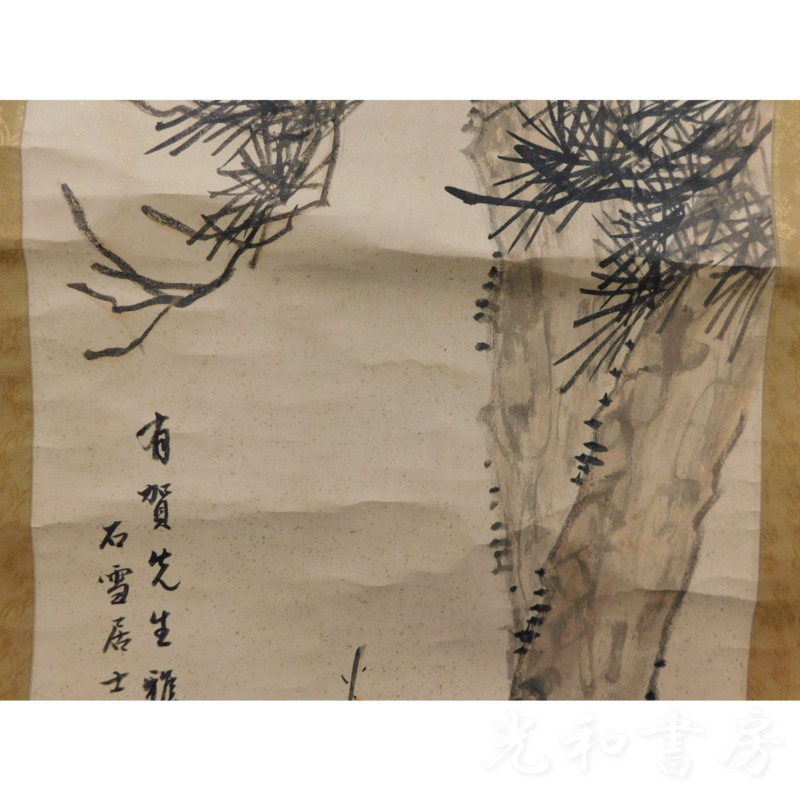 有賀先生雅
石雪居士
光和書房